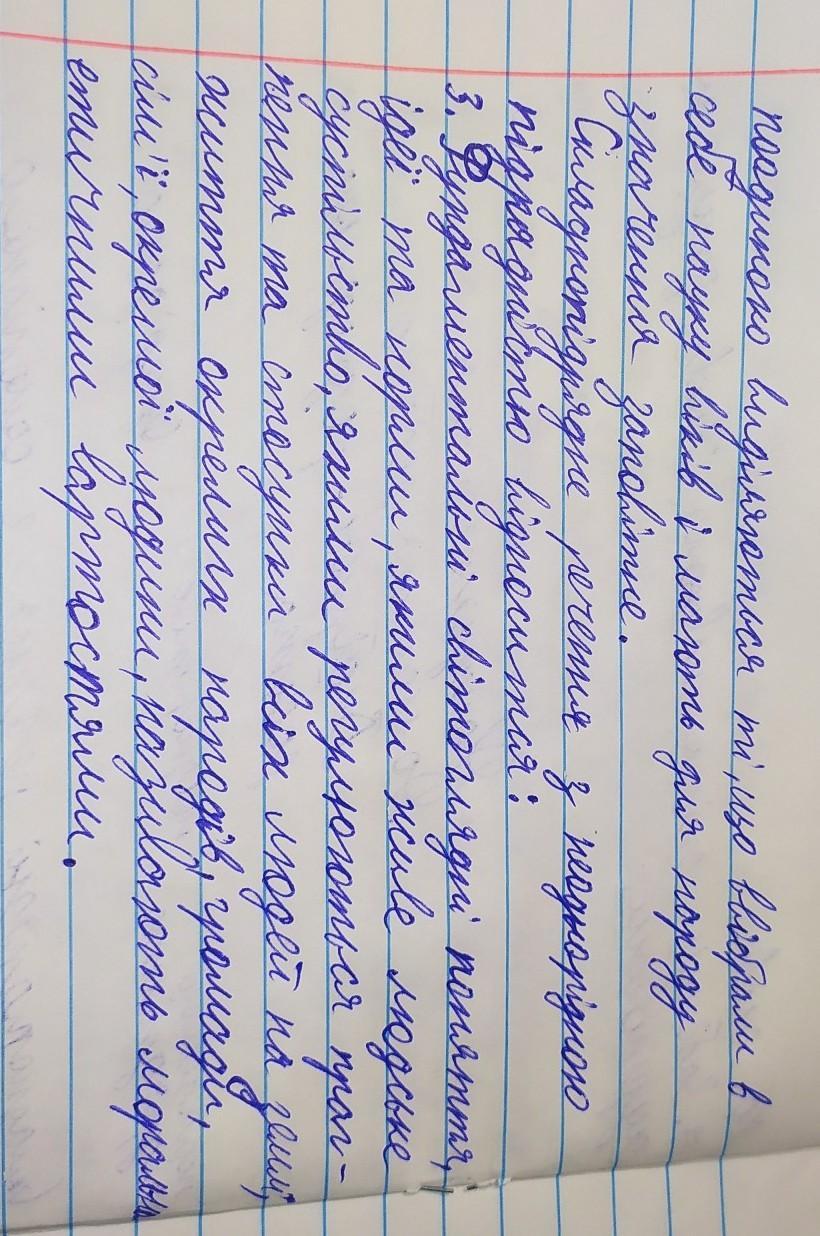 поодиноко виділяються ті, що ввібрали в
себе науку віків і мають для народу
значення заповітне.
Складнопідрядне речення з неоднорідною
підрядністю відноситься:
3. Фундаментальні світоглядні поняття,
ідеї та норми, якими живе людське
суспільство, якими регулюються праг-
нення та стосунки всіх людей на землі,
життя окремих народів, громади,
сім'ї, окремої людини, називають морально
етичними вартостями.